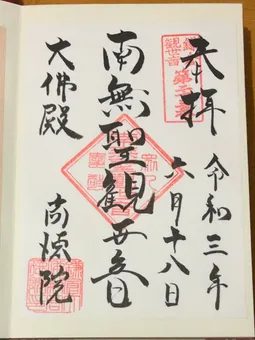 奉拝
令和三年
六月十八日
観世音
南無聖觀世音
大佛殿
高徳院